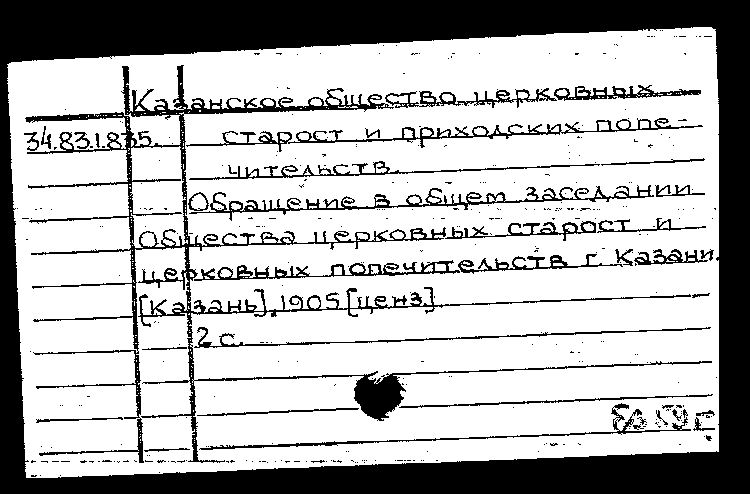 Казанское общество церковных
34.83.1.835. старост и приходских попе-
чительств.
Обращение в общем заседании
Общества церковных старост и
церковных попечительств г. Казани.
[Казань], 1905 [ценз.]
2 с.